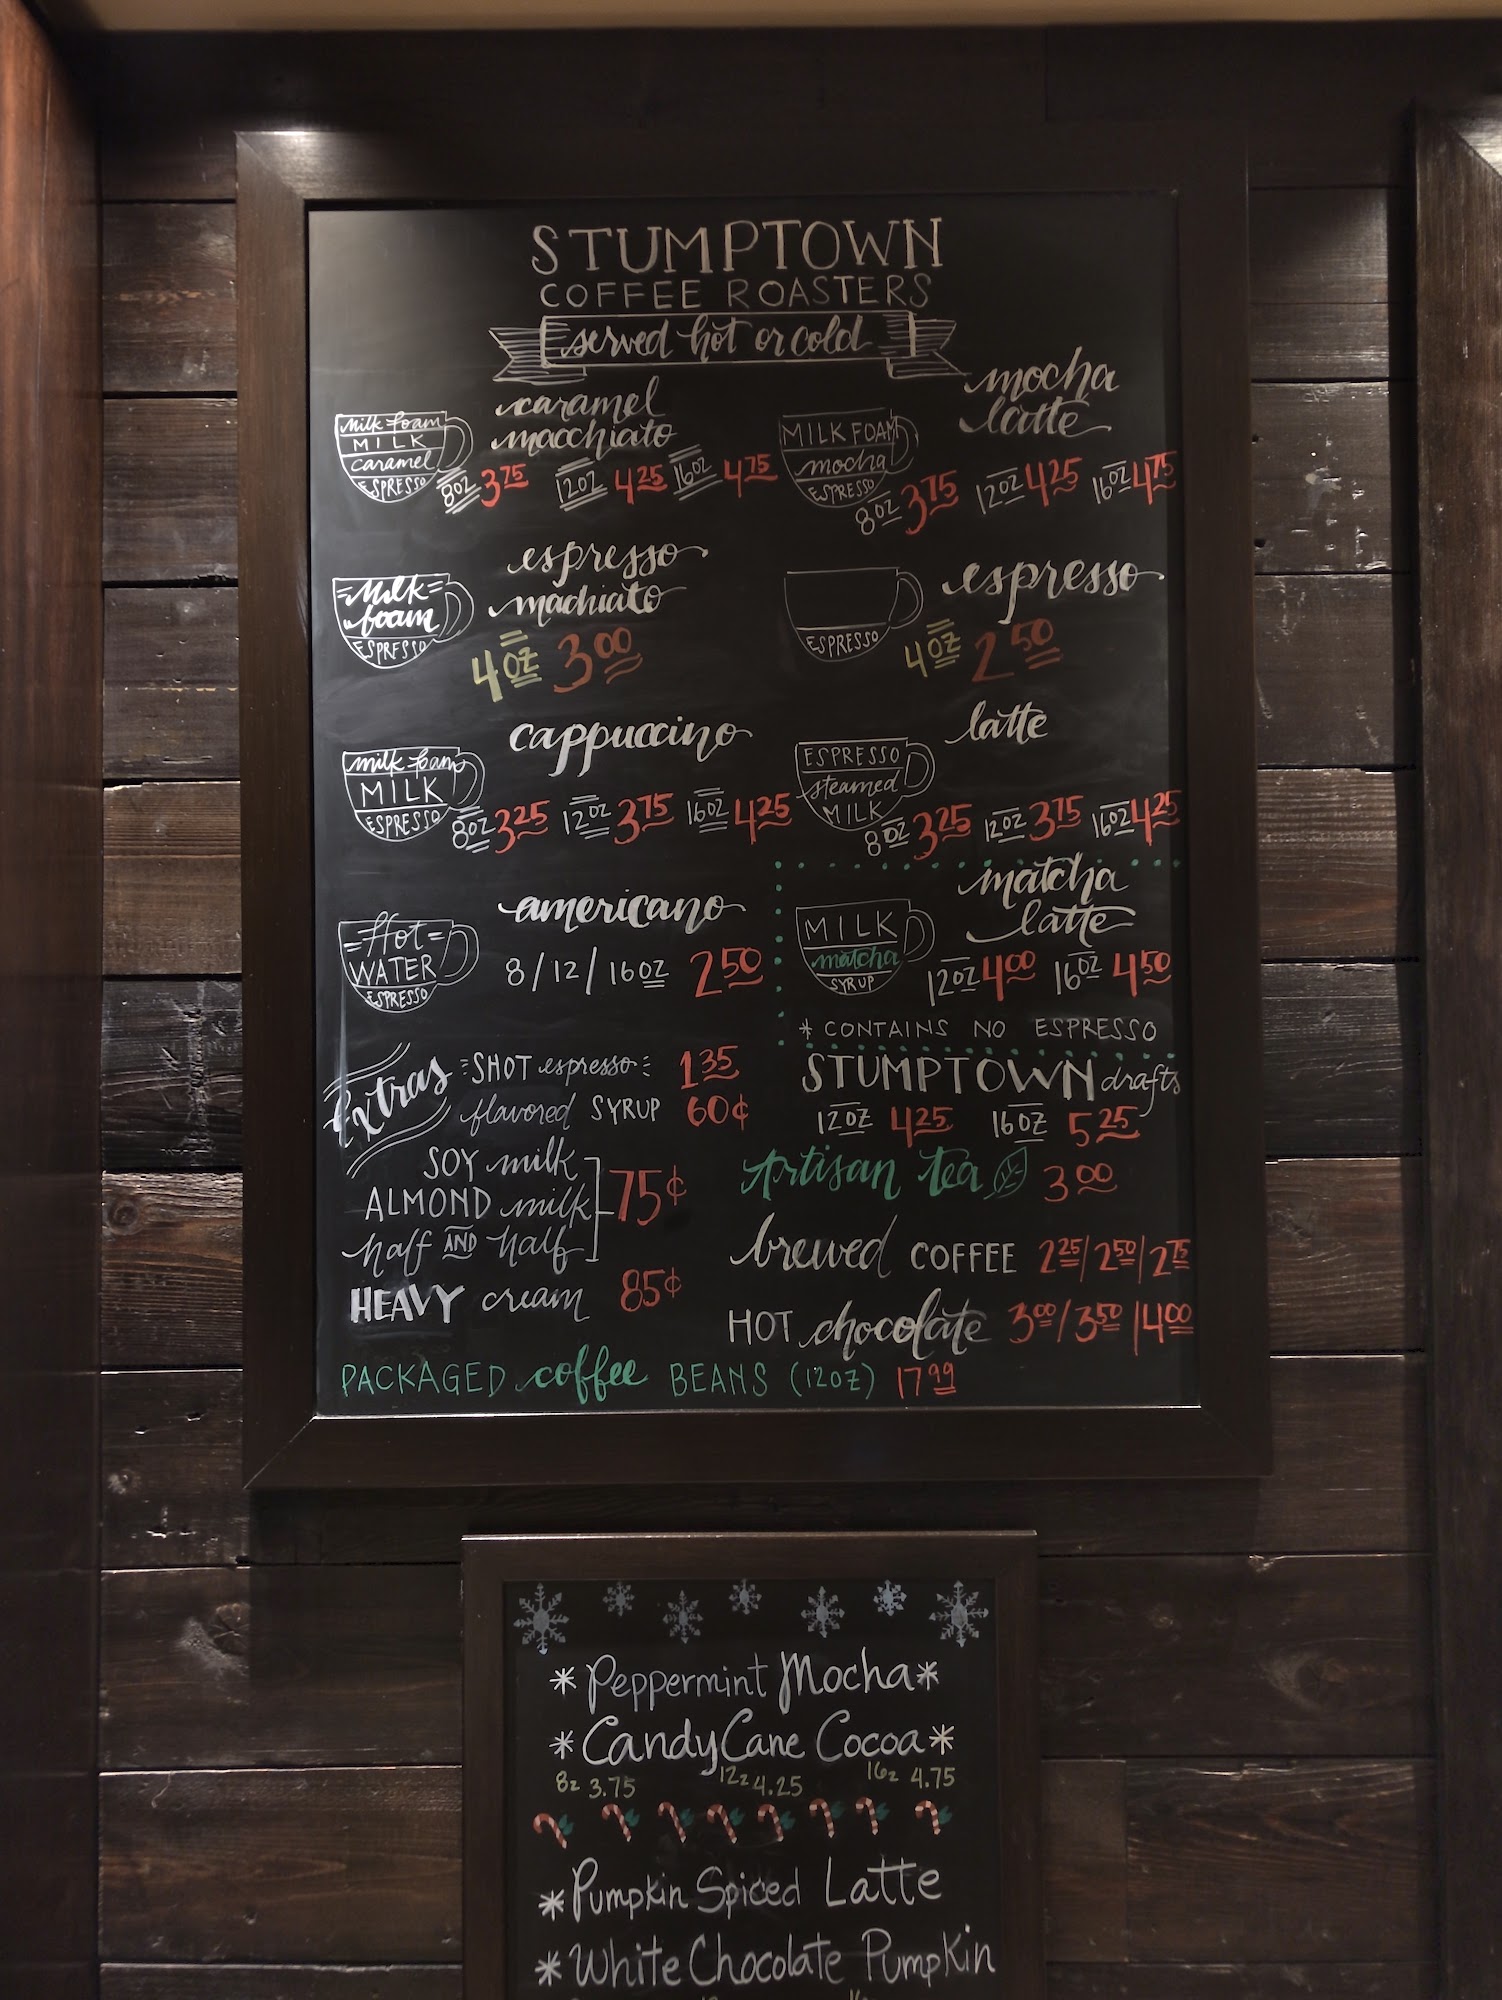 STUMPTOWN
COFFEE ROASTERS
served hot or cold
milk foam
MILK
caramel
ESPRESSO
caramel
macchiato
8oz 3.75 12oz 4.25 16oz 4.75
MILK FOAM
mocha
ESPRESSO
mocha
latte
8oz 3.75 12oz 4.25 16oz 4.75
milk
foam
ESPRESSO
espresso
machiato
4oz 3.00
ESPRESSO
espresso
4oz 2.50
milk foam
MILK
ESPRESSO
cappuccino
8oz 3.25 12oz 3.75 16oz 4.25
ESPRESSO
steamed
MILK
latte
8oz 3.25 12oz 3.75 16oz 4.25
Hot
WATER
ESPRESSO
americano
8/12/16oz 2.50
MILK
matcha
SYRUP
matcha
latte
12oz 4.00 16oz 4.50
* CONTAINS NO ESPRESSO
Extras
SHOT espresso 1.35
flavored SYRUP 60¢
SOY milk
ALMOND milk 75¢
half AND half
HEAVY cream 85¢
STUMPTOWN drafts
12oz 4.25 16oz 5.25
Artisan tea 3.00
brewed COFFEE 2.25/2.50/2.75
HOT chocolate 3.00/3.50/4.00
PACKAGED coffee BEANS (12oz) 17.99
* Peppermint Mocha *
* Candy Cane Cocoa *
8z 3.75 12z 4.25 16z 4.75
* Pumpkin Spiced Latte
* White Chocolate Pumpkin